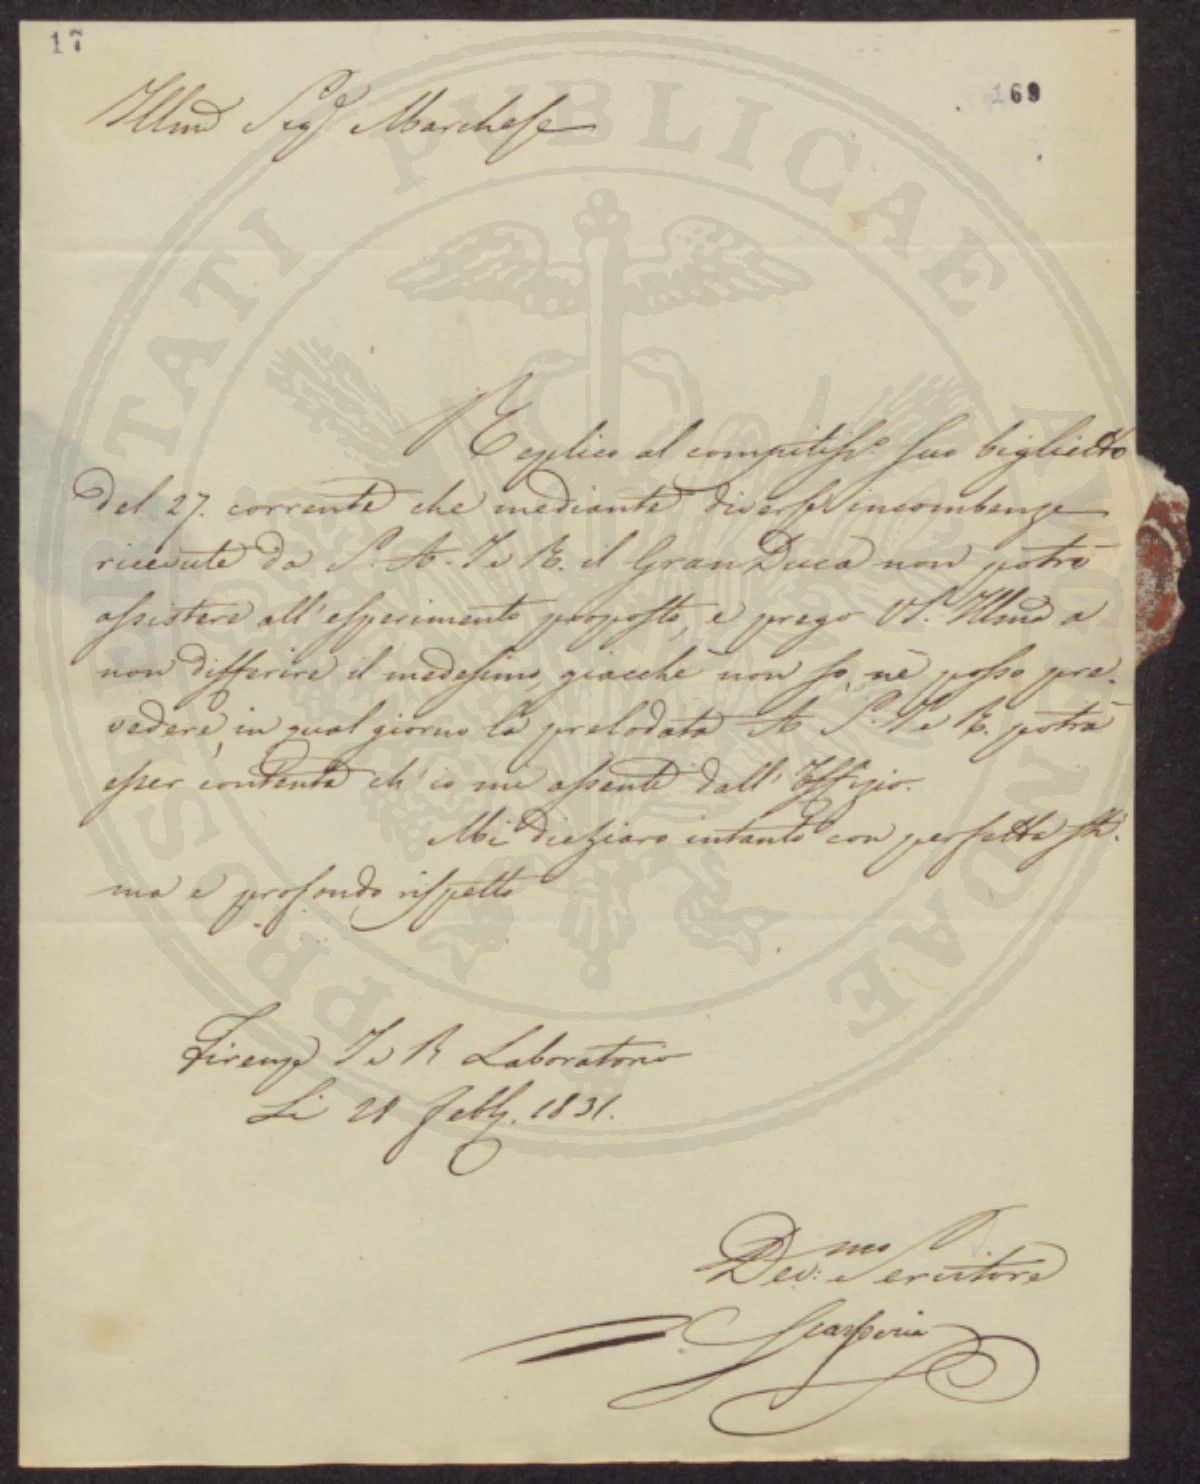 17
169
Illmo Sigr Marchese
Replico al compitissº. suo biglietto
del 27. corrente che mediante diverse incombenze
ricevute da S. A. I e R. il GranDuca non potrò
assistere all'esperimento proposto, e prego VS. Illma a
non differire il medesimo, giacchè non so, nè posso pre-
vedere, in qual giorno la prelodata A S. I e R. potrà
esser contenta ch'io mi assenti dall'Uffizio.
Mi dichiaro intanto con perfetta sti-
ma e profondo rispetto
Firenze I e R Laboratorio
Li 28 Febb. 1831.
Dev:mo Servitore
PROSPERITATI PUBLICAE AUGENDAE